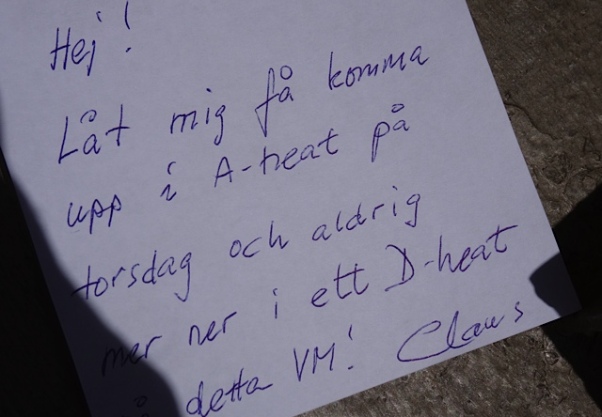 Hej!
Låt mig få komma
upp i A-heat på
torsdag och aldrig
mer ner i ett D-heat
på detta VM! Claus